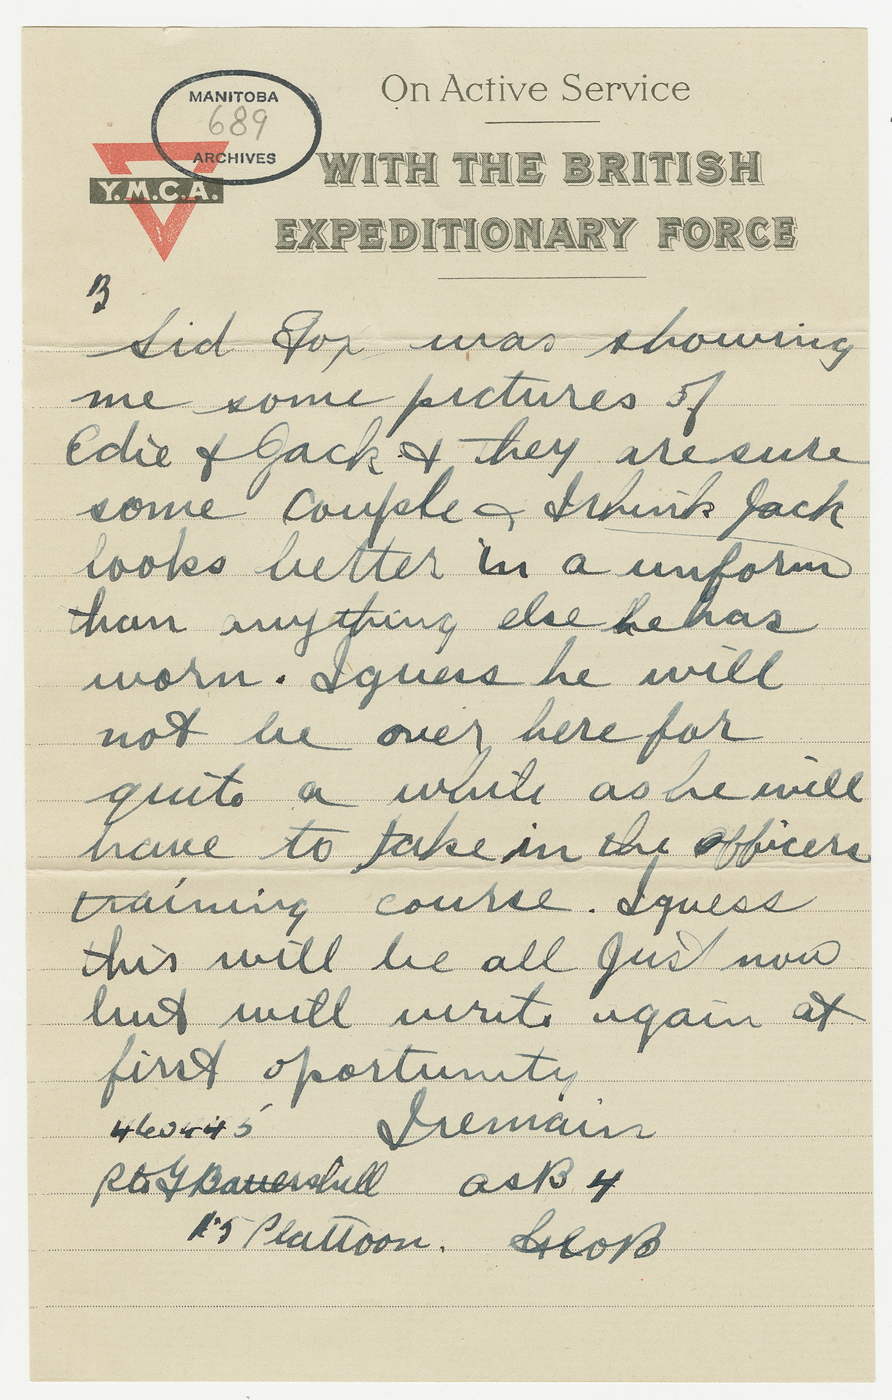 On Active Service
MANITOBA
689
ARCHIVES
Y.M.C.A.
WITH THE BRITISH
EXPEDITIONARY FORCE
3
Sid Fox was showing
me some pictures of
Edie & Jack & they are sure
some couple & I think Jack
looks better in a unform
than anything else he has
worn. I guess he will
not be over here for
quite a while as he will
have to take in the officers
training course. I guess
this will be all Just now
but will write again at
first oportunity
I remain
Pte G Battershill as B 4
Plattoon.